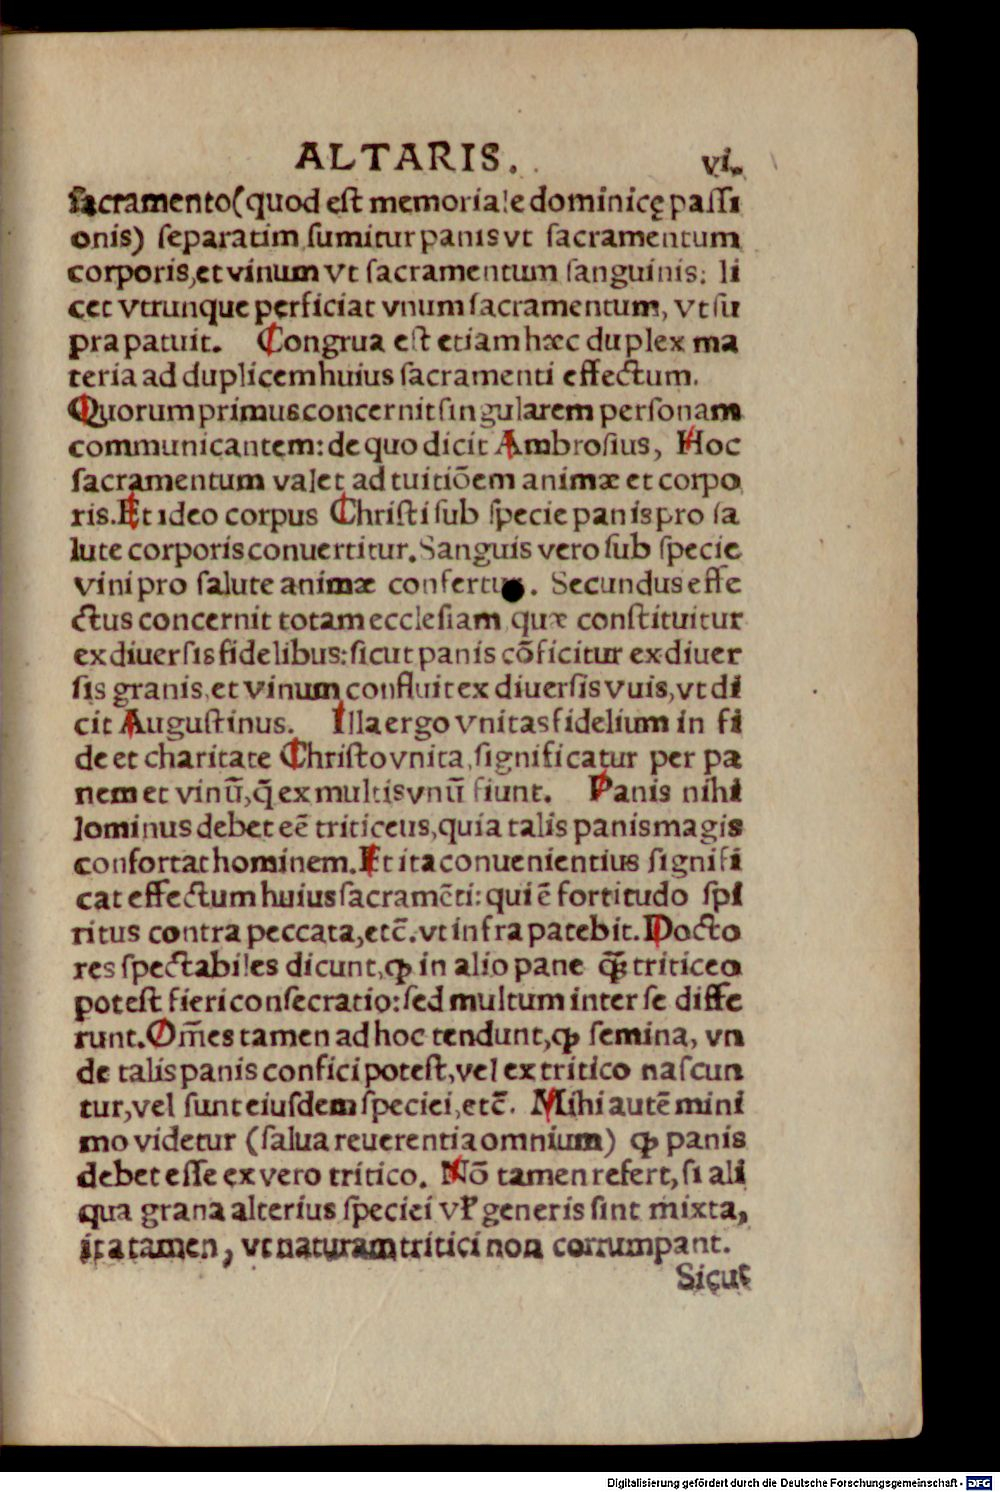 ALTARIS. vi.
ſacramento(quod eſt memoriale dominicę paſſi
onis) ſeparatim ſumitur panis vt ſacramentum
corporis,et vinum vt ſacramentum ſanguinis: li
cet vtrunque perficiat vnum ſacramentum, vt ſu
pra patuit. Congrua eſt etiam hæc duplex ma
teria ad duplicem huius ſacramenti effectum.
Quorum primus concernit ſingularem perſonam
communicantem: de quo dicit Ambroſius, Hoc
ſacramentum valet ad tuitiõem animæ et corpo
ris. Et ideo corpus Chriſti ſub ſpecie panis pro ſa
lute corporis conuertitur. Sanguis vero ſub ſpecie
vini pro ſalute animæ confertur. Secundus effe
ctus concernit totam eccleſiam quæ conſtituitur
ex diuerſis fidelibus: ſicut panis cõficitur ex diuer
ſis granis,et vinum confluit ex diuerſis vuis,vt di
cit Auguſtinus. Illa ergo vnitas fidelium in fi
de et charitate Chriſto vnita,ſignificatur per pa
nem et vinũ,q̃ ex multis vnũ fiunt. Panis nihi
lominus debet eẽ triticeus,quia talis panis magis
confortat hominem. Et ita conuenientius ſignifi
cat effectum huius ſacramẽti: qui ẽ fortitudo ſpi
ritus contra peccata,etc̃. vt infra patebit. Docto
res ſpectabiles dicunt,ꝙ in alio pane q̃ꝫ triticeo
poteſt fieri conſecratio: ſed multum inter ſe diffe
runt. Om̃es tamen ad hoc tendunt,ꝙ ſemina, vn
de talis panis confici poteſt,vel ex tritico naſcun
tur,vel ſunt eiuſdem ſpeciei,etc̃. Mihi autẽ mini
mo videtur (ſalua reuerentia omnium) ꝙ panis
debet eſſe ex vero tritico. Nõ tamen refert,ſi ali
qua grana alterius ſpeciei vł generis ſint mixta,
ita tamen, vt naturam tritici non corrumpant.
Sicut
Digitalisierung gefördert durch die Deutsche Forschungsgemeinschaft - DFG